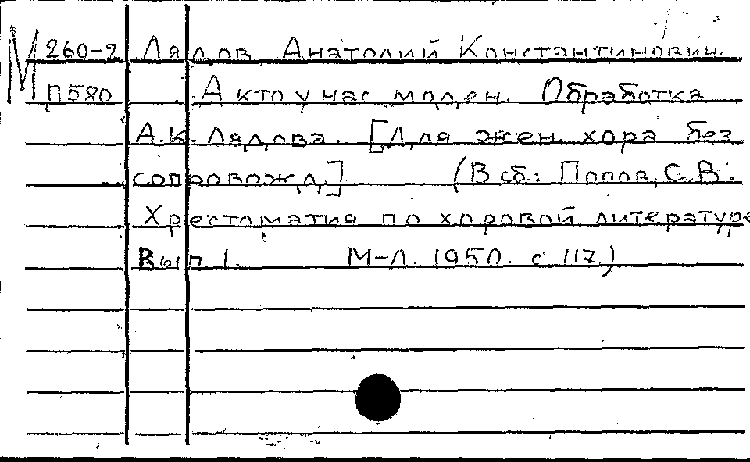 М 260-2 Лядов Анатолий Константинович.
П580 А кто у нас моден. Обработка
А.К. Лядова. [Для жен. хора без
сопровожд.] (В сб.: Попов, С.В.
Хрестоматия по хоровой литературе
Вып 1. М-Л. 1950. с 117)